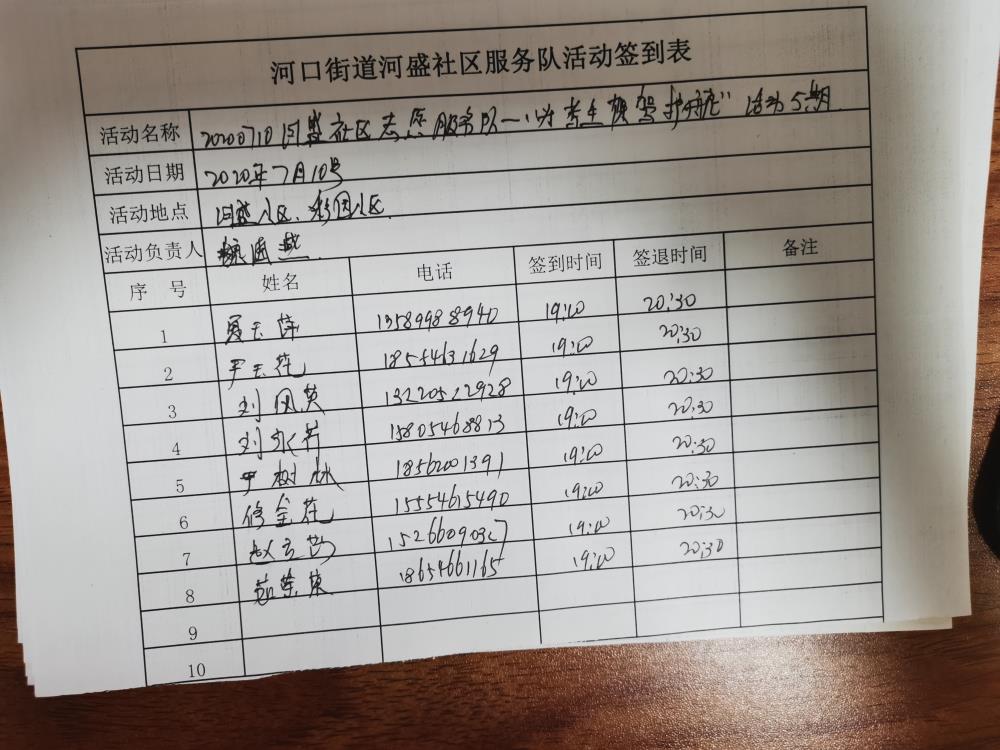 河口街道河盛社区服务队活动签到表
活动名称 20200710河盛社区志愿服务队—“为考生保驾护航”活动5期
活动日期 2020年7月10号
活动地点 河盛小区、
活动负责人
序 号 姓名 电话 签到时间 签退时间 备注
1 夏玉萍 13589988940 19:10 20:30
2 尹玉花 18554631629 19:10 20:30
3 刘凤英 13220512928 19:10 20:30
4 刘永芳 15805468813 19:10 20:30
5 尹树林 18562001391 19:10 20:30
6 修金花 15554615490 19:10 20:30
7 赵云 19:10 20:30
8 18654661165 19:10 20:30
9
10